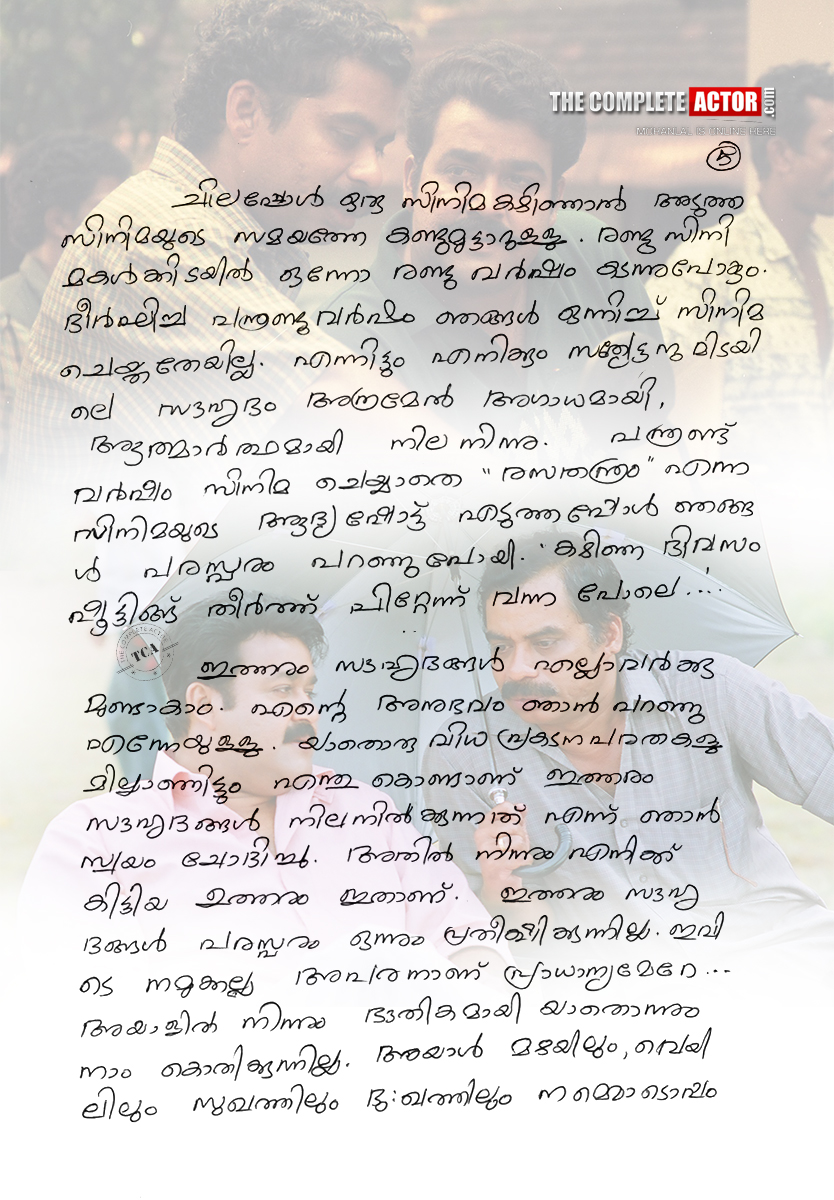 THE COMPLETE ACTOR .com
MOHANLAL IS ONLINE HERE
5
ചിലപ്പോൾ ഒരു സിനിമകഴിഞ്ഞാൽ അടുത്ത
സിനിമയുടെ സമയത്തേ കണ്ടുമുട്ടാറുള്ളൂ. രണ്ടു സിനി
മകൾക്കിടയിൽ ഒന്നോ രണ്ടു വർഷം കടന്നുപോകും.
ദീർഘിച്ച പന്ത്രണ്ടുവർഷം ഞങ്ങൾ ഒന്നിച്ച് സിനിമ
ചെയ്തതേയില്ല. എന്നിട്ടും എനിക്കും സത്യേട്ടനുമിടയി
ലെ സൗഹൃദം അത്രമേൽ അഗാധമായി,
ആത്മാർത്ഥമായി നിലനിന്നു. പന്ത്രണ്ട്
വർഷം സിനിമ ചെയ്യാതെ "രസതന്ത്രം" എന്ന
സിനിമയുടെ ആദ്യഷോട്ട് എടുത്തപ്പോൾ ഞങ്ങ
ൾ പരസ്പരം പറഞ്ഞുപോയി. 'കഴിഞ്ഞ ദിവസം
ഷൂട്ടിങ്ങ് തീർത്ത് പിറ്റേന്ന് വന്ന പോലെ...'
THE COMPLETE ACTOR
TCA
ഇത്തരം സൗഹൃദങ്ങൾ എല്ലാവർക്കു
മുണ്ടാകാം. എന്റെ അനുഭവം ഞാൻ പറഞ്ഞു
എന്നേയുള്ളൂ. യാതൊരു വിധ പ്രകടനപരതകളു
മില്ലാഞ്ഞിട്ടും എന്തു കൊണ്ടാണ് ഇത്തരം
സൗഹൃദങ്ങൾ നിലനിൽക്കുന്നത് എന്ന് ഞാൻ
സ്വയം ചോദിച്ചു. അതിൽ നിന്നും എനിക്ക്
കിട്ടിയ ഉത്തരം ഇതാണ്. ഇത്തരം സൗഹൃ
ദങ്ങൾ പരസ്പരം ഒന്നും പ്രതീക്ഷിക്കുന്നില്ല. ഇവി
ടെ നമുക്കല്ല അപരനാണ് പ്രാധാന്യമേറേ...
അയാളിൽ നിന്നും ഭൗതികമായി യാതൊന്നും
നാം കൊതിക്കുന്നില്ല. അയാൾ മഴയിലും, വെയി
ലിലും സുഖത്തിലും ദു:ഖത്തിലും നമ്മൊടൊപ്പം